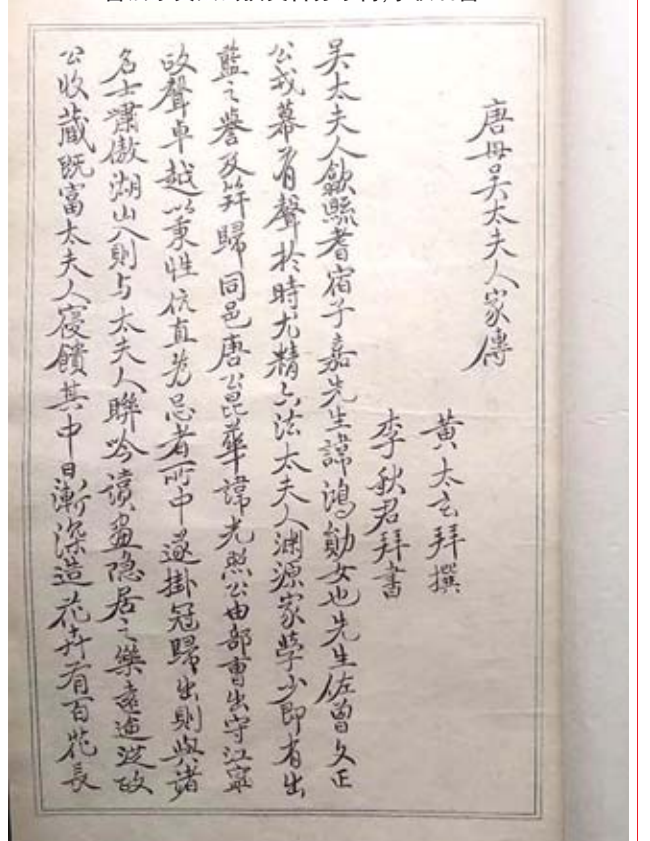 唐母吴太夫人家傳
黄太玄拜撰
李秋君拜書
吴太夫人歙縣耆宿子嘉先生諱鴻勛女也先生佐曾文正
公戎幕有聲於時尤精六法太夫人渊源家學少即有出
藍之譽及笄歸同邑唐公昆華諱光照公由部曹出守江寧
政聲卓越以秉性伉直为忌者所中遂掛冠歸出則與諸
名士嘯傲湖山入則与太夫人聯吟讀畫隐居之樂遠邇從欽
公收藏既富太夫人寢饋其中日漸深造花卉有百花長